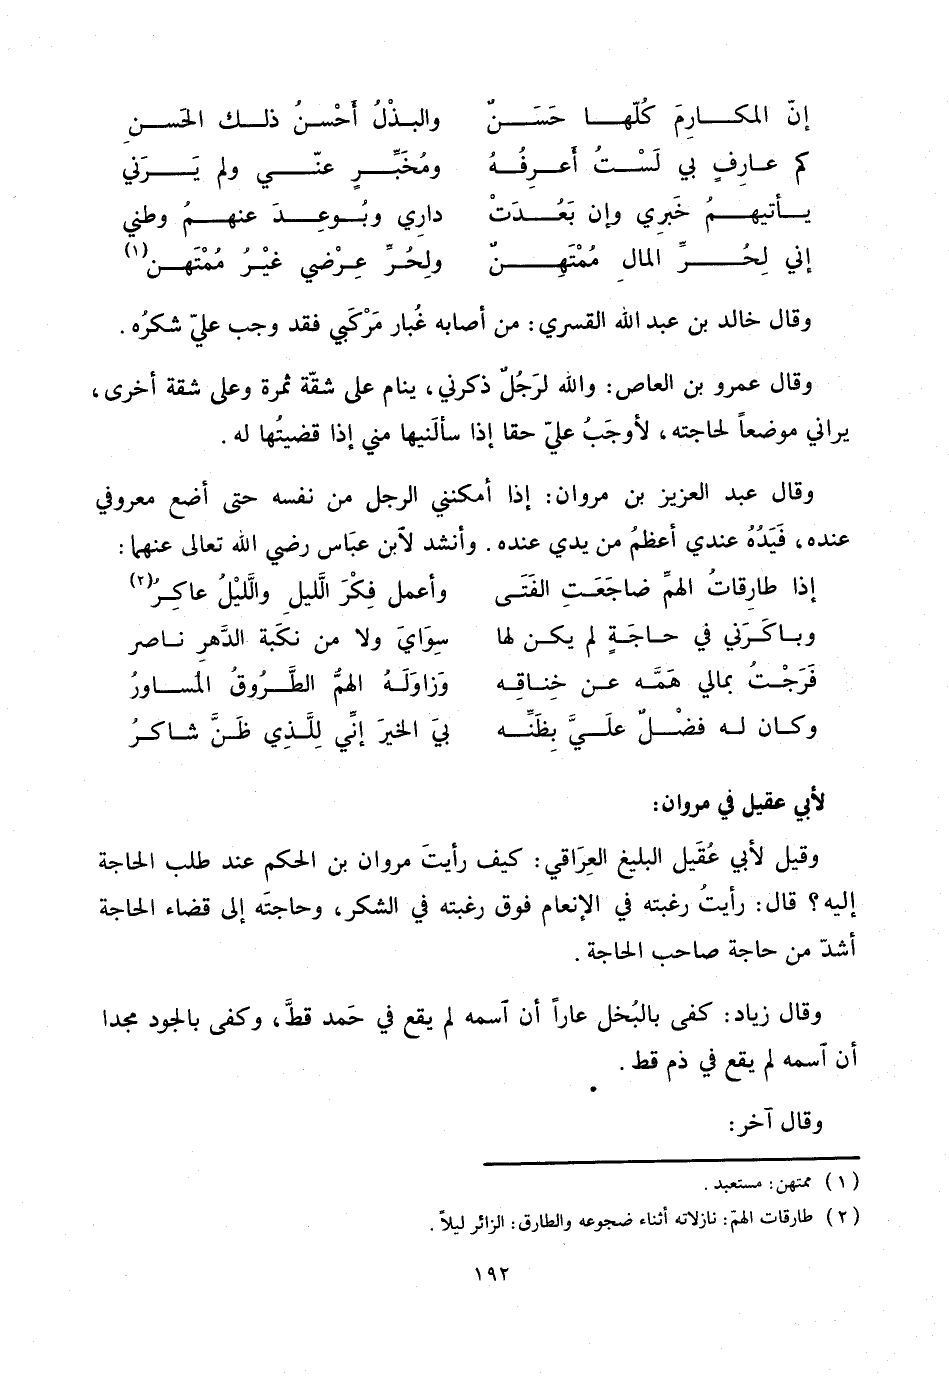 إنّ المكارمَ كُلّها حَسَنٌ والبذْلُ أَحْسنُ ذلك الحَسنِ
كم عارِفٍ بي لَسْتُ أَعرِفُهُ ومُخَبِّرٍ عنّي ولم يَرَني
يأتيهمُ خَبرِي وإن بَعُدَتْ داري وبُوعِدَ عنهمُ وطني
إني لِحُرِّ المالِ مُمْتَهِنٌ ولِحُرِّ عِرْضي غيْرُ مُمْتَهنِ(١)
وقال خالد بن عبد الله القسري: من أصابه غُبار مَرْكَبي فقد وجب عليّ شكرُه.
وقال عمرو بن العاص: والله لرَجُلٌ ذكرني، ينام على شقّة ثمرة وعلى شقة أخرى،
يراني موضعاً لحاجته، لأوجَبُ عليّ حقا إذا سألَنيها مني إذا قضيتُها له.
وقال عبد العزيز بن مروان: إذا أمكنني الرجل من نفسه حتى أضع معروفي
عنده، فَيَدُهُ عندي أعظمُ من يدي عنده. وأنشد لآبن عبّاس رضي الله تعالى عنهما:
إذا طارقاتُ الهمِّ ضاجَعَتِ الفَتَى وأعمل فِكْرَ الَّليلِ والَّليْلُ عاكِرُ(٢)
وباكَرَني في حاجَةٍ لم يكن لها سِوَايَ ولا من نكَبة الدَّهرِ ناصر
فَرَجْتُ بمالي هَمَّه عن خِناقِه وَزاوَلَهُ الهمُّ الطَّرُوقُ المُساورُ
وكان له فضْلٌ علَيَّ بِظَنِّه بيَ الخيرَ إنِّي لِلَّذي ظَنَّ شاكرُ
لأبي عقيل في مروان:
وقيل لأبي عُقَيل البليغ العِرَاقي: كيف رأيتَ مروان بن الحكم عند طلب الحاجة
إليه؟ قال: رأيتُ رغبته في الإنعام فوق رغبته في الشكر، وحاجتَه إلى قضاء الحاجة
أشدّ من حاجة صاحب الحاجة.
وقال زياد: كفى بالبُخل عاراً أن آسمه لم يقع في حَمد قطَّ، وكفى بالجود مجدا
أن آسمه لم يقع في ذم قط.
وقال آخر:
(١) ممتهن: مستعبد.
(٢) طارقات الهمّ: نازلاته أثناء ضجوعه والطارق: الزائر ليلاً.
١٩٢